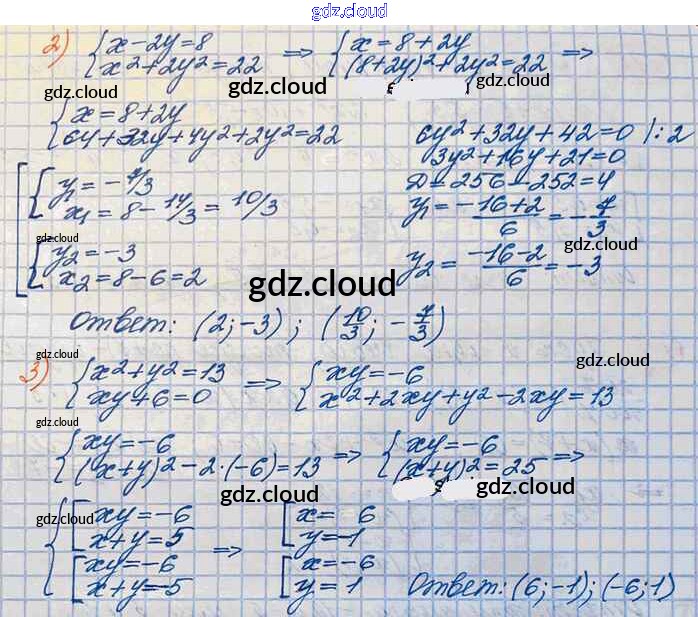 gdz.cloud
2) { x-2y=8 => { x=8+2y =>
x²+2y²=22 (8+2y)²+2y²=22
gdz.cloud gdz.cloud gdz.cloud
{ x=8+2y
64+32y+4y²+2y²=22 6y²+32y+42=0 |:2
3y²+16y+21=0
[ { y₁=-7/3 D=256-252=4
x₁=8-14/3=10/3 y₁=(-16+2)/6=-7/3
gdz.cloud gdz.cloud
{ y₂=-3
x₂=8-6=2 y₂=(-16-2)/6=-3
gdz.cloud
Ответ: (2;-3); (10/3; -7/3)
gdz.cloud gdz.cloud
3) { x²+y²=13 => { xy=-6
xy+6=0 x²+2xy+y²-2xy=13
gdz.cloud
{ xy=-6 => { xy=-6 =>
(x+y)²-2·(-6)=13 (x+y)²=25
gdz.cloud gdz.cloud
{ [ xy=-6 => [ x= 6
x+y=5 y=-1
gdz.cloud
[ xy=-6 [ x=-6
x+y=-5 y=1 Ответ: (6;-1); (-6;1)